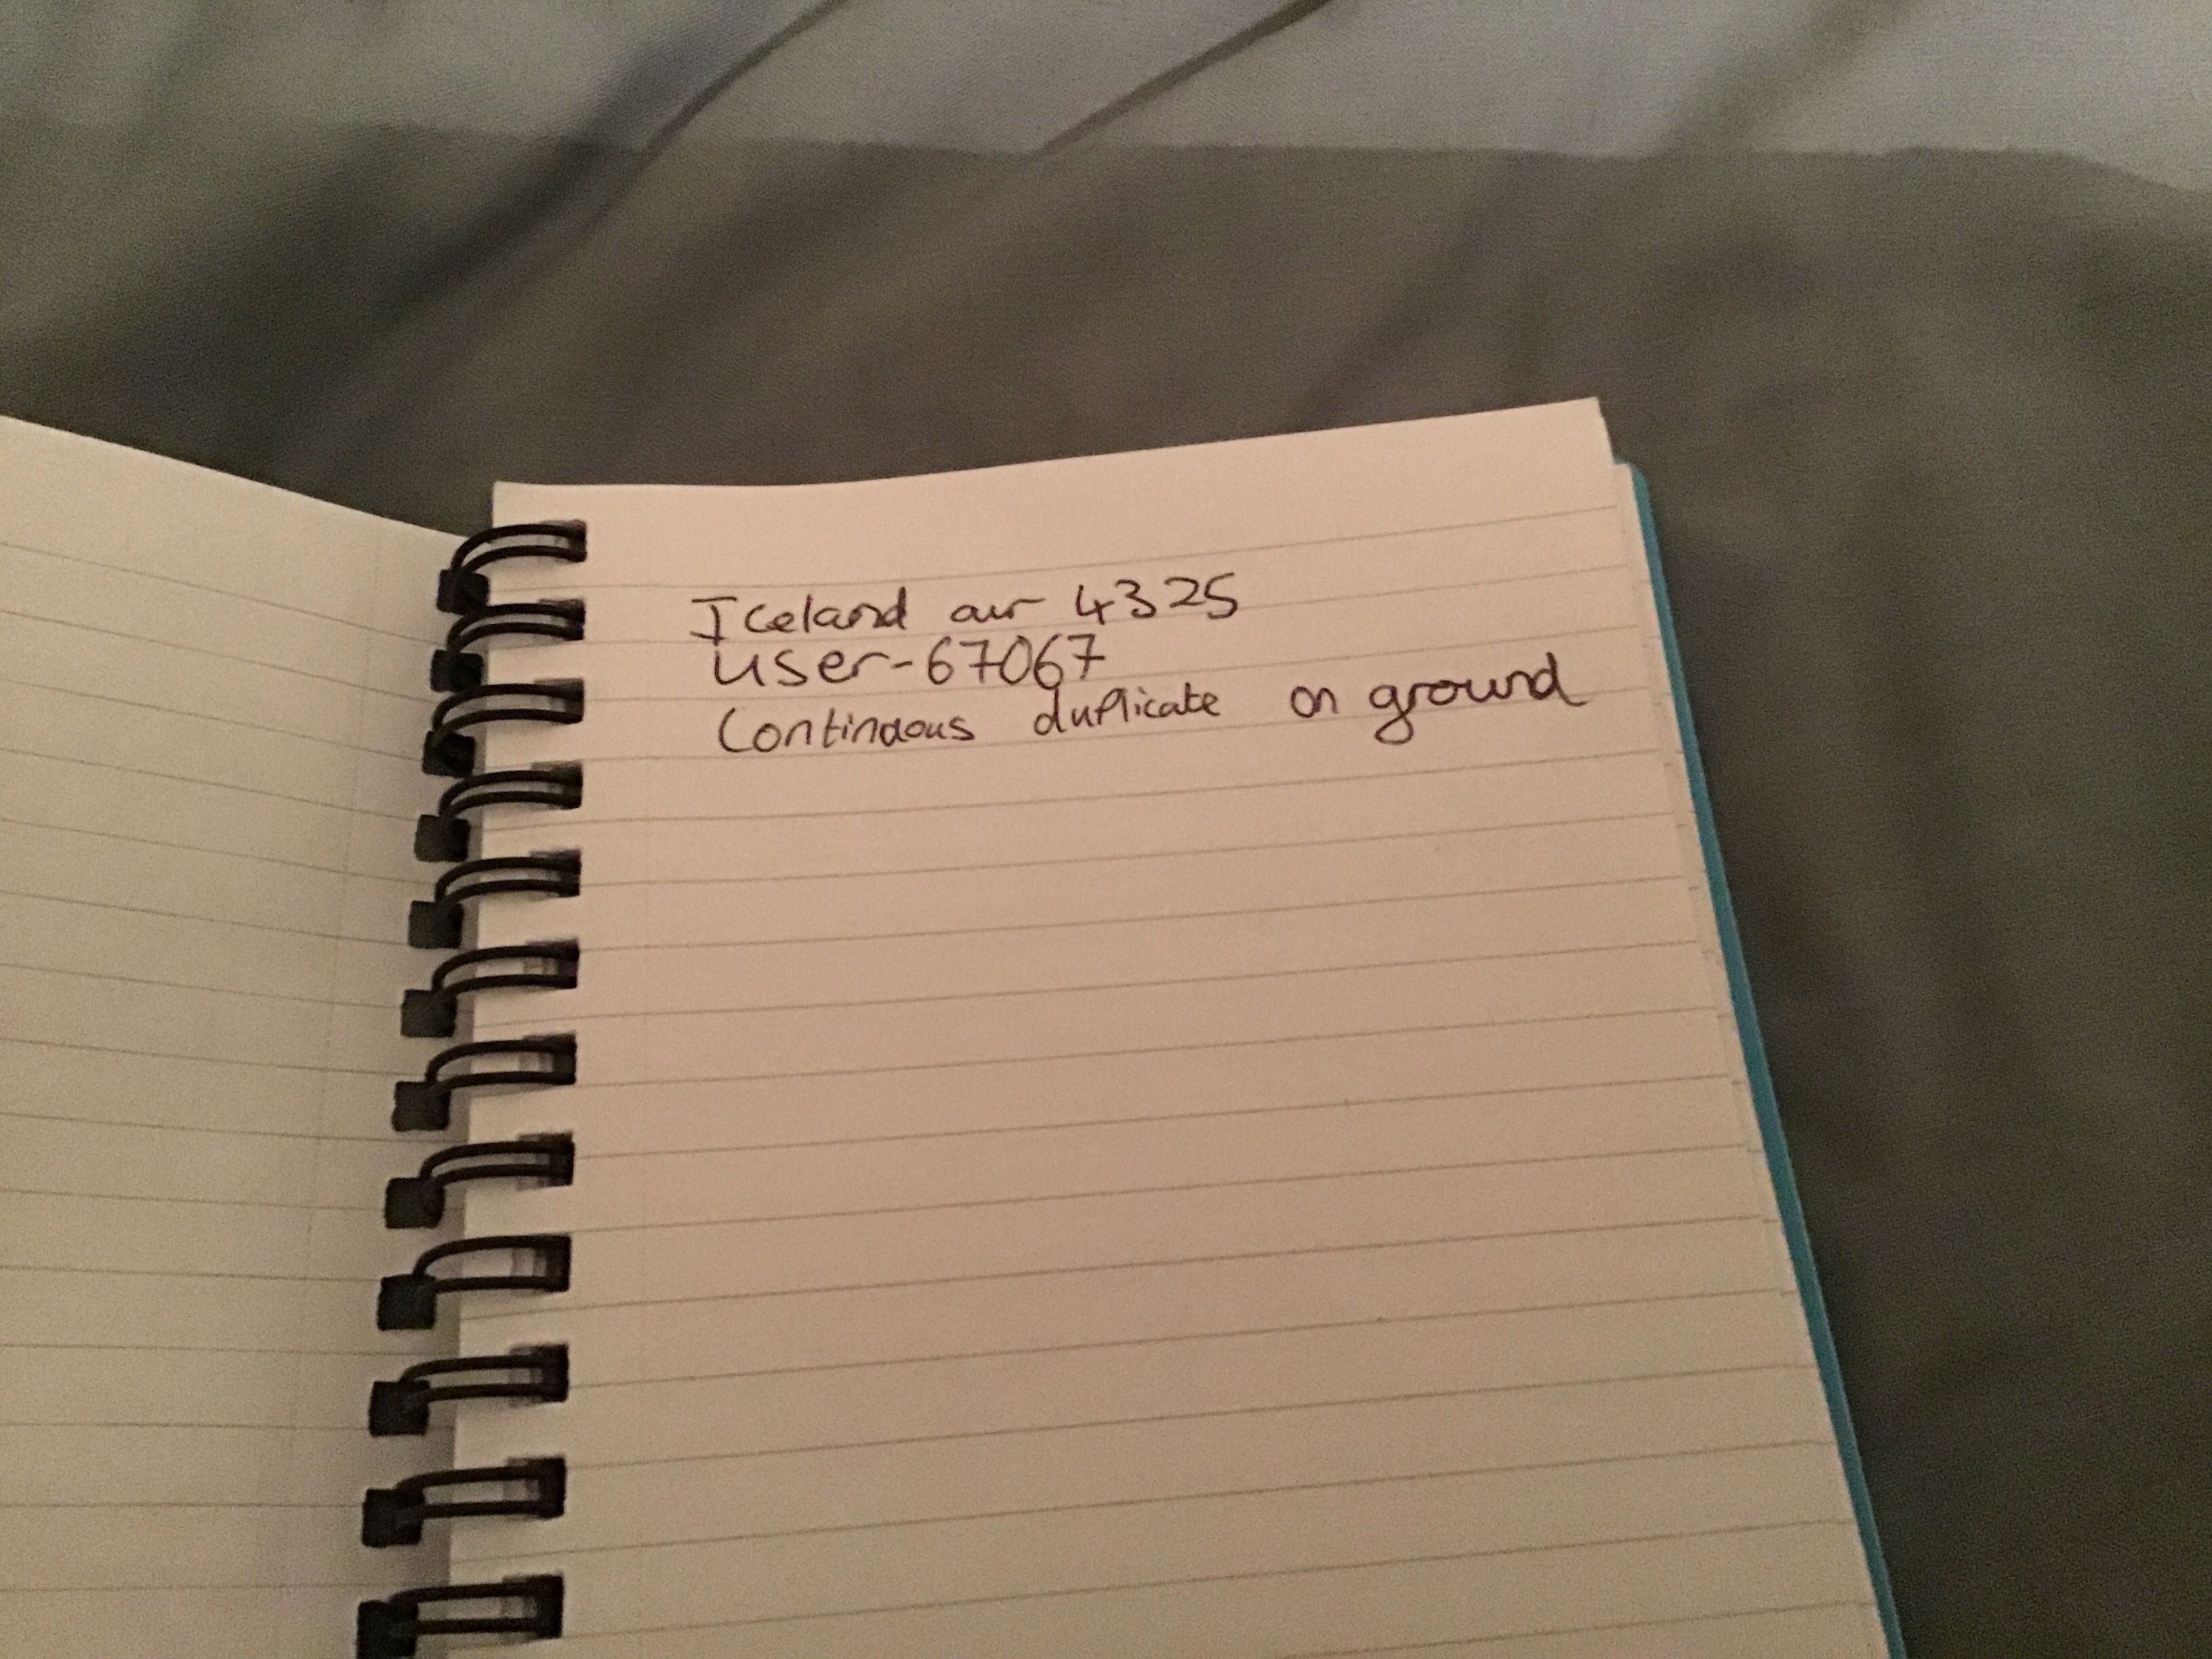 Iceland air 4325
user-67067
Continuous duplicate on ground